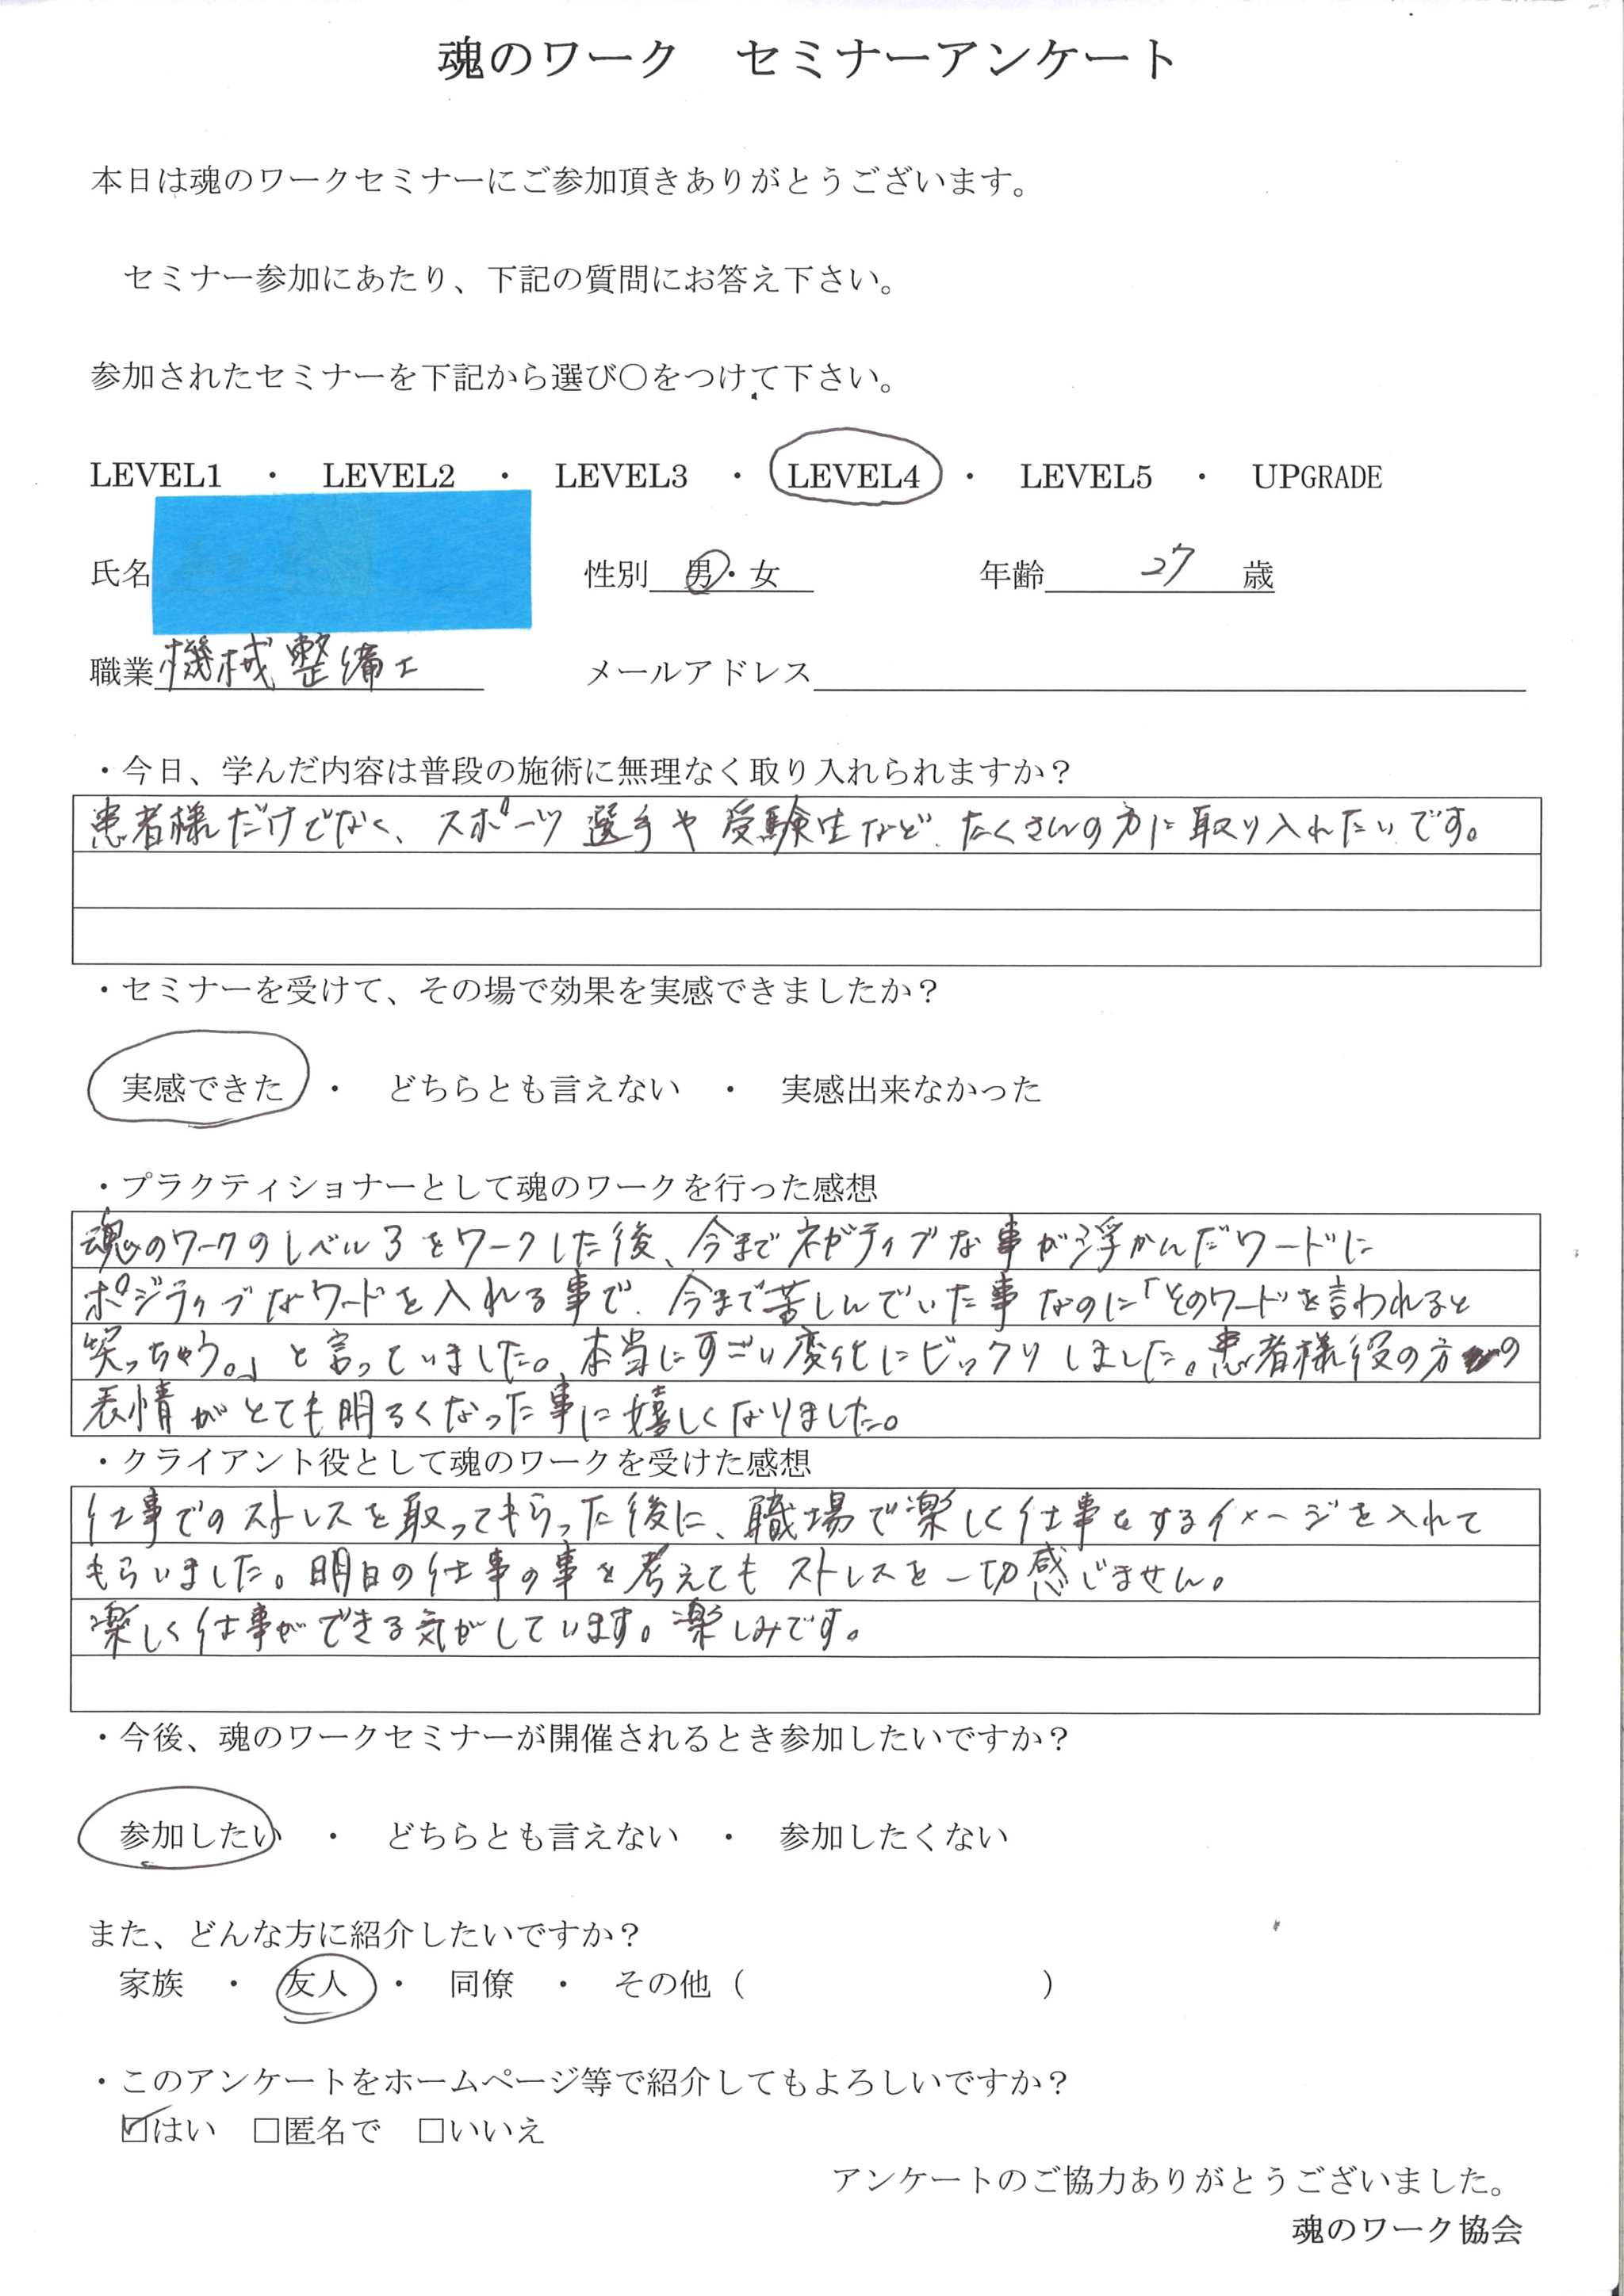 魂のワーク　セミナーアンケート
本日は魂のワークセミナーにご参加頂きありがとうございます。
セミナー参加にあたり、下記の質問にお答え下さい。
参加されたセミナーを下記から選び〇をつけて下さい。
LEVEL1 ・ LEVEL2 ・ LEVEL3 ・ LEVEL4 ・ LEVEL5 ・ UPGRADE
氏名 性別 男・女 年齢 27 歳
職業 機械整備士 メールアドレス
・今日、学んだ内容は普段の施術に無理なく取り入れられますか？
患者様だけでなく、スポーツ選手や受験生など、たくさんの方に取り入れたいです。
・セミナーを受けて、その場で効果を実感できましたか？
実感できた ・ どちらとも言えない ・ 実感出来なかった
・プラクティショナーとして魂のワークを行った感想
魂のワークのレベル3をワークした後、今までネガティブな事が浮かんだワードに
ポジティブなワードを入れる事で、今まで苦しんでいた事なのに「そのワードを言われると
笑っちゃう。」と言っていました。本当にすごい変化にビックリしました。患者様役の方の
表情がとても明るくなった事に嬉しくなりました。
・クライアント役として魂のワークを受けた感想
仕事でのストレスを取ってもらった後に、職場で楽しく仕事をするイメージを入れて
もらいました。明日の仕事の事を考えてもストレスを一切感じません。
楽しく仕事ができる気がしています。楽しみです。
・今後、魂のワークセミナーが開催されるとき参加したいですか？
参加したい ・ どちらとも言えない ・ 参加したくない
また、どんな方に紹介したいですか？
家族 ・ 友人 ・ 同僚 ・ その他（ ）
・このアンケートをホームページ等で紹介してもよろしいですか？
☑はい □匿名で □いいえ
アンケートのご協力ありがとうございました。
魂のワーク協会